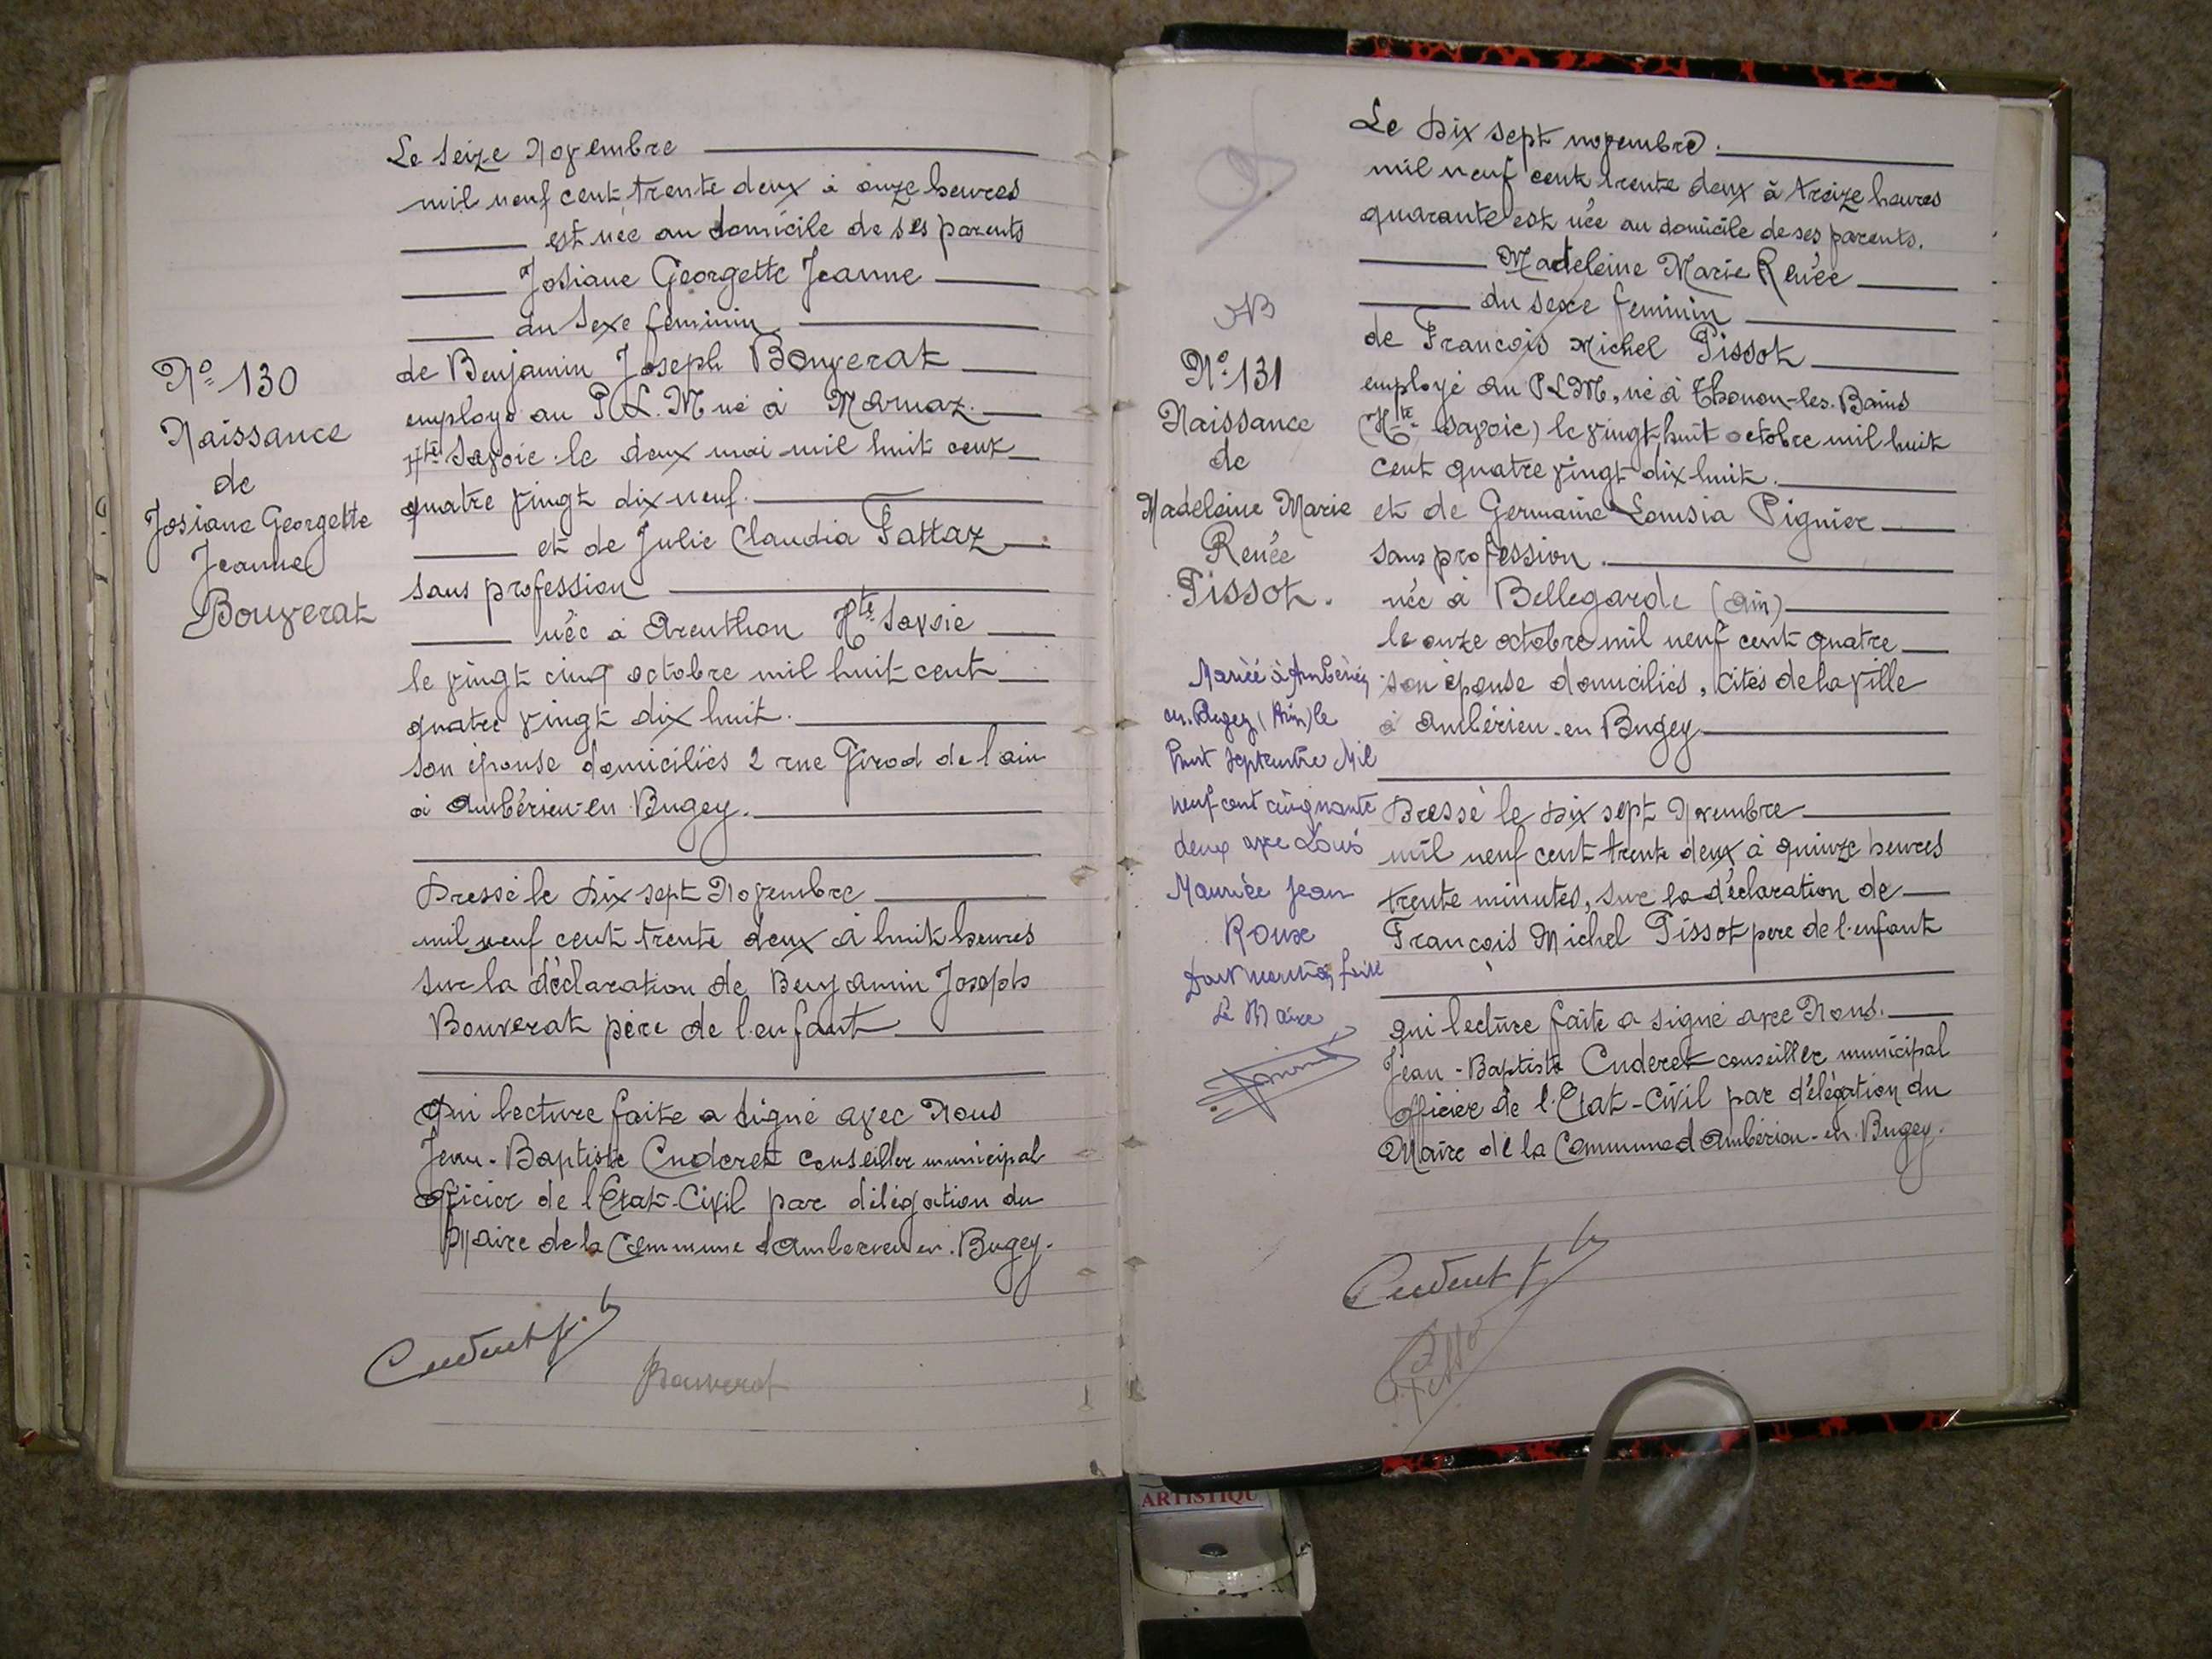 Le seize Novembre
mil neuf cent trente deux à onze heures
est née au domicile de ses parents
Josiane Georgette Jeanne
du sexe féminin
N° 130
Naissance
de
Josiane Georgette
Jeanne
Bouverat
de Benjamin Joseph Bouverat
employé au P.L.M né à Marnaz
Hte Savoie le deux mai mil huit cent
quatre vingt dix neuf.
et de Julie Claudia Fattaz
sans profession
née à Arenthon Hte Savoie
le vingt cinq octobre mil huit cent
quatre vingt dix huit.
son épouse domiciliés 2 rue Girod de l'ain
à Ambérieu-en Bugey.
Dressé le dix sept Novembre
mil neuf cent trente deux à huit heures
sur la déclaration de Benjamin Joseph
Bouverat père de l'enfant
Qui lecture faite a signé avec Nous
Jean-Baptiste Cuderet conseiller municipal
officier de l'Etat-Civil par délégation du
Maire de la Commune d'Amberieu en Bugey.
Cuderet
Bouverat
Le dix sept novembre.
mil neuf cent trente deux à treize heures
quarante est née au domicile de ses parents.
Madeleine Marie Renée
du sexe feminin
NB
N° 131
Naissance
de
Madeleine Marie
Renée
Pissot.
de François Michel Pissot
employé au PLM, né à Thonon-les-Bains
(Hte Savoie) le vingt huit octobre mil huit
cent quatre vingt dix huit.
et de Germaine Lousia Pignier
sans profession.
née à Bellegarde (Ain)
le onze octobre mil neuf cent quatre
son épouse domiciliés, cités de la ville
à Ambérieu-en Bugey
Mariée à Ambérieu
en Bugey (Ain) le
huit Septembre Mil
neuf cent cinquante
deux avec Louis
Maurice Jean
Roux
Dont mention faite
Le Maire
Dressé le dix sept Novembre
mil neuf cent trente deux à quinze heures
trente minutes, sur la déclaration de
François Michel Pissot père de l'enfant
qui lecture faite a signé avec Nous.
Jean-Baptiste Cuderet conseiller municipal
officier de l'Etat-Civil par délégation du
Maire de la Commune d'Ambérieu-en-Bugey.
Cuderet
ARTISTIQU